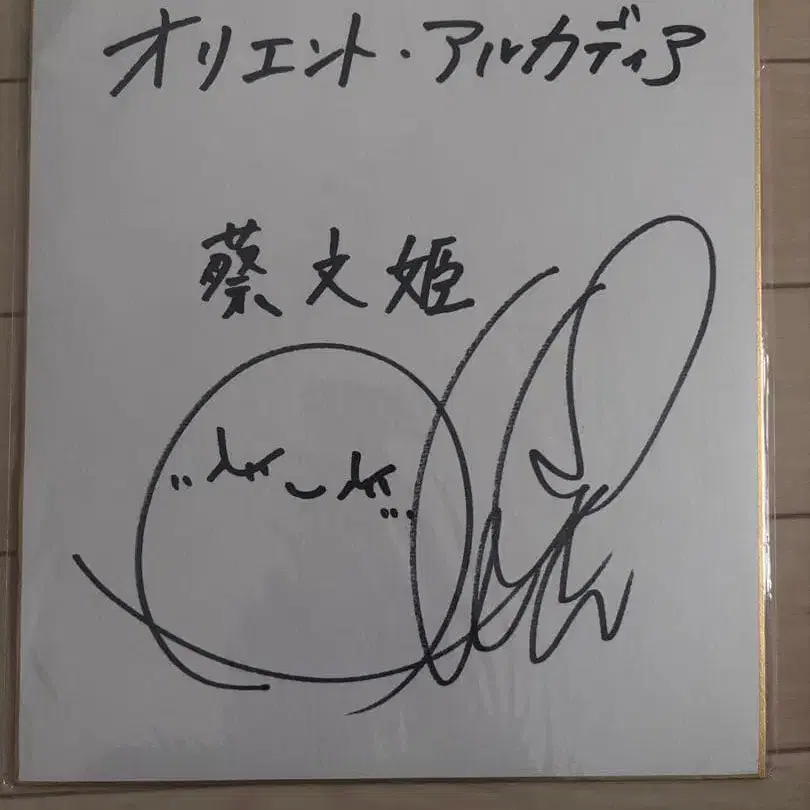 オリエント・アルカディア
蔡文姫